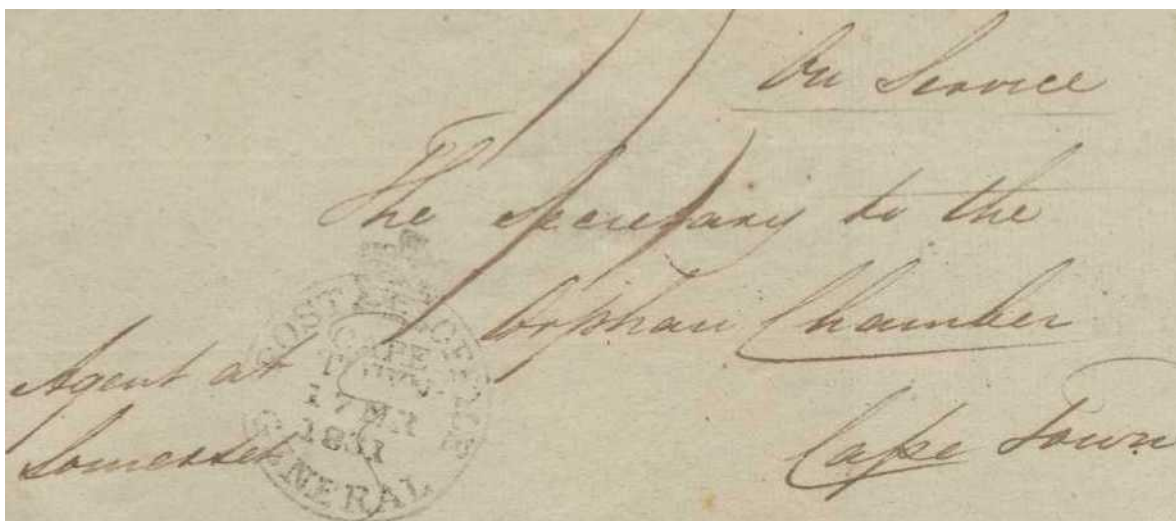 On Service
The Secretary to the
Orphan Chamber
Cape Town
Agent at
Somerset
GENERAL POST OFFICE
CAPE
TOWN
17 MR
1831